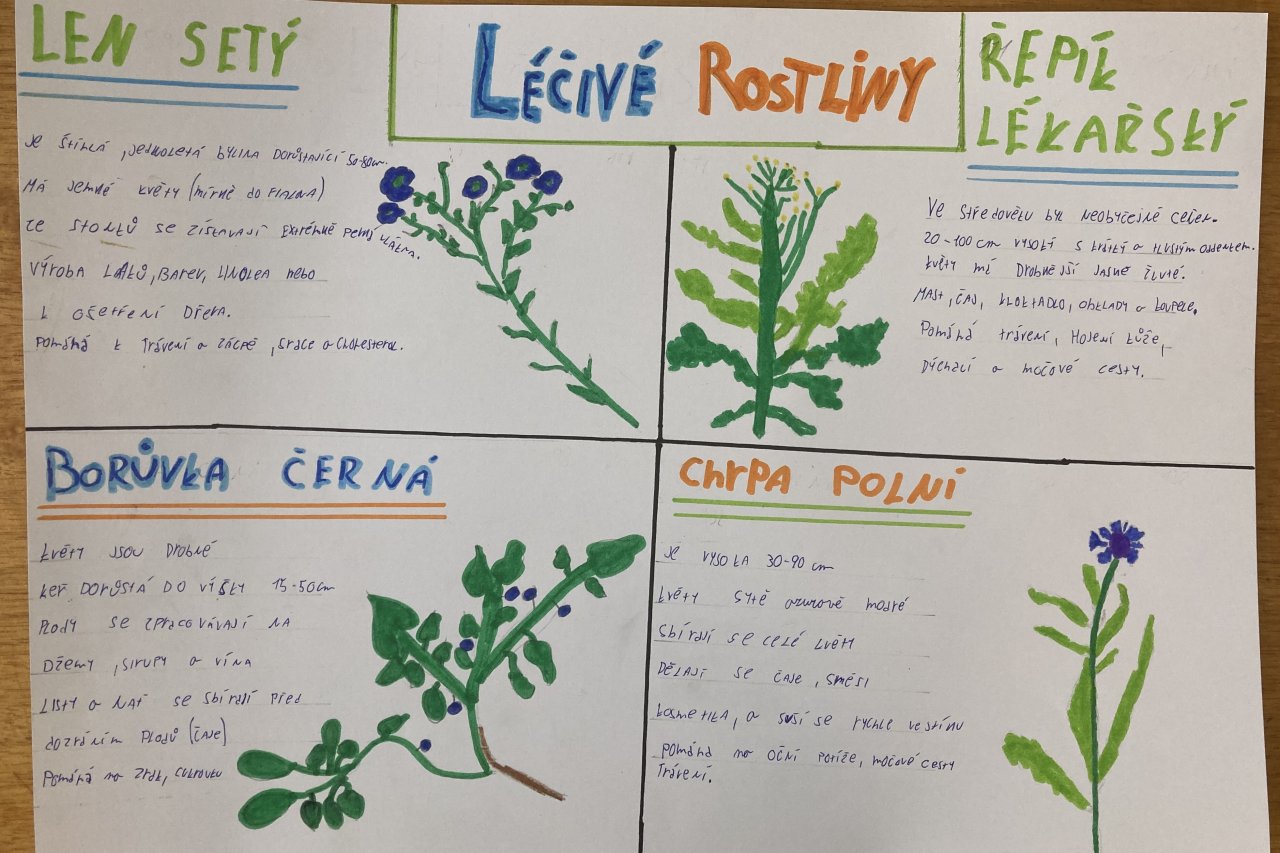 LÉČIVÉ ROSTLINY
LEN SETÝ
JE ŠTÍHLÁ, JEDNOLETÁ BYLINA DORŮSTAJÍCÍ 50-80cm.
MÁ JEMNÉ KVĚTY (mírně do FIALNA)
ZE STONKŮ SE ZÍSKAVAJÍ EXTRÉMNĚ PEVNÁ VLÁKNA.
VÝROBA LAKŮ, BAREV, LINOLEA nebo
K OŠETŘENÍ DŘEVA.
POMÁHÁ K TRÁVENÍ a ZÁCPĚ, SRDCE a CHOLESTEROL.
ŘEPÍK
LÉKAŘSKÝ
VE STŘEDOVĚKU BYL NEOBYČEJNĚ CEŇEN.
20-100 cm VYSOKÝ S KRÁTKÝ a TLUSTÝM ODDENKEM.
KVĚTY MÁ DROBNĚJŠÍ JASNĚ ŽLUTÉ.
MAST, ČAJ, KLOKTADLO, OBKLADY a KOUPELE.
POMÁHÁ TRÁVENÍ, HOJENÍ KŮŽE,
DÝCHACÍ a MOČOVÉ CESTY.
BORŮVKA ČERNÁ
KVĚTY JSOU DROBNÉ
KEŘ DORŮSTÁ DO VÝŠKY 15-50cm
PLODY SE ZPRACOVÁVAJÍ NA
DŽEMY, SIRUPY a VÍNA
LISTY a NAŤ SE SBÍRAJÍ PŘED
dozráním PLODŮ (ČAJE)
POMÁHÁ na ZRAK, CUKROVKU
CHRPA POLNÍ
JE VYSOKÁ 30-90 cm
KVĚTY SYTĚ azurově MODRÉ
SBÍRAJÍ SE CELÉ KVĚTY
DĚLAJÍ SE ČAJE, SMĚSI
KOSMETIKA, a SUŠÍ SE RYCHLE VE STÍNU
POMÁHÁ na OČNÍ POTÍŽE, MOČOVÉ CESTY
TRÁVENÍ.